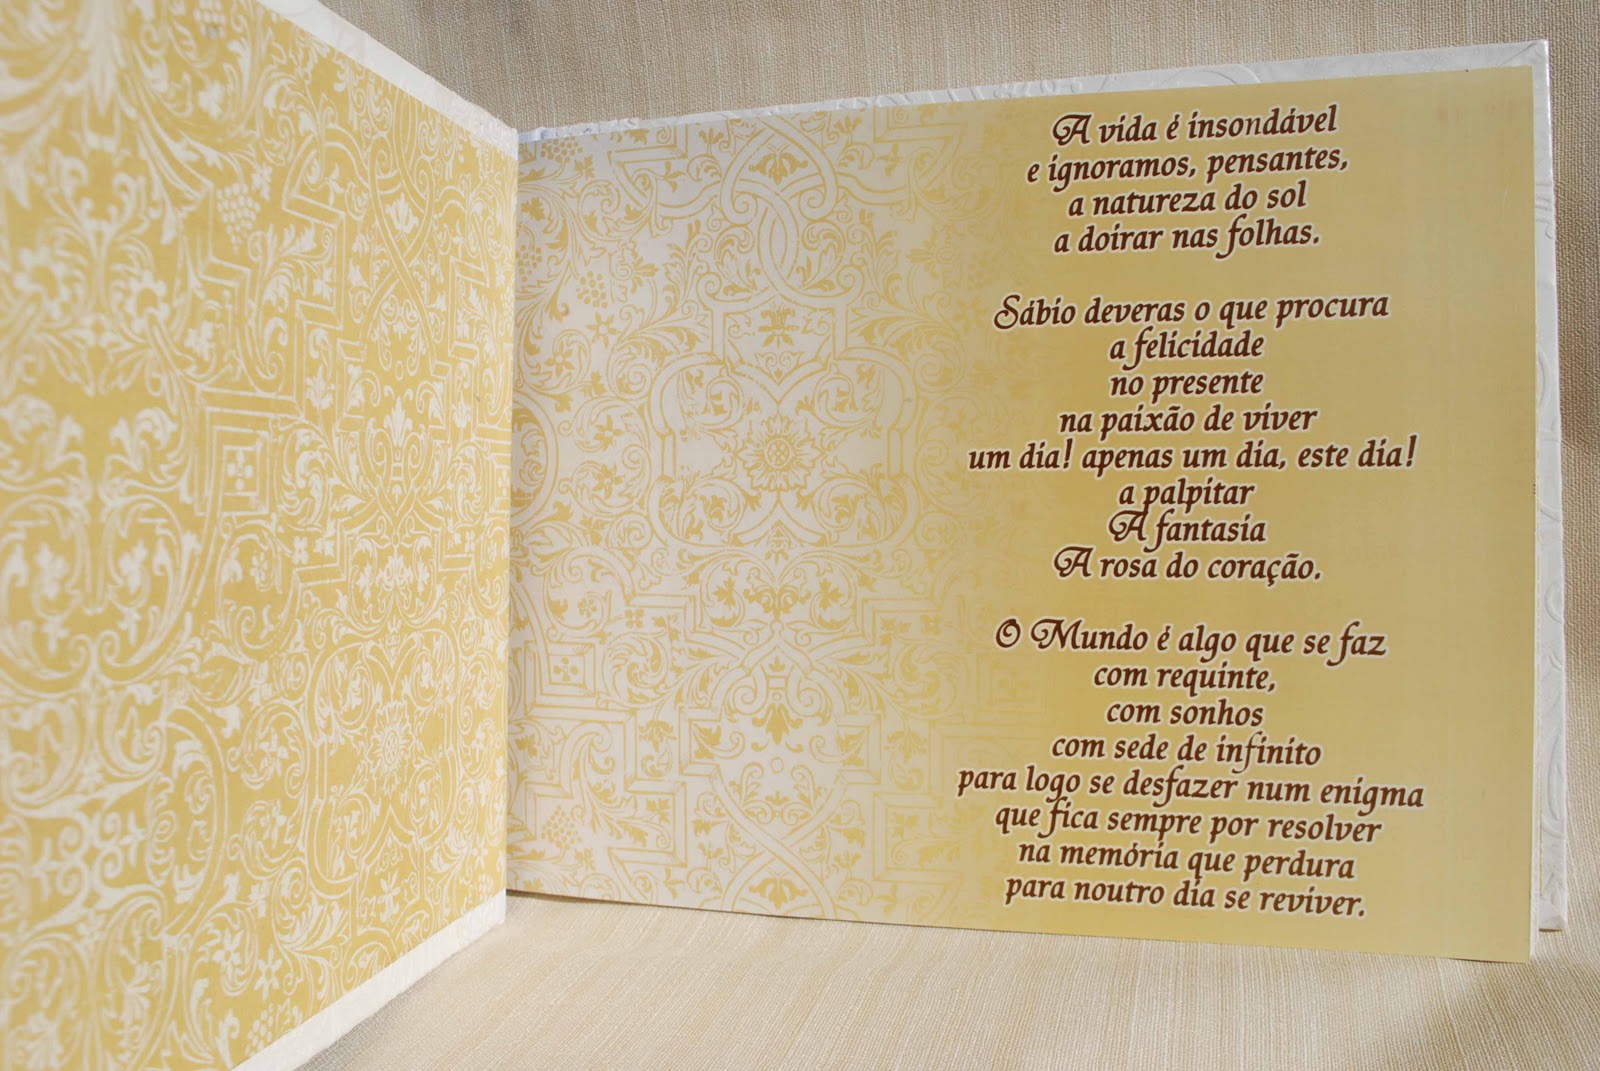 A vida é insondável
e ignoramos, pensantes,
a natureza do sol
a doirar nas folhas.
Sábio deveras o que procura
a felicidade
no presente
na paixão de viver
um dia! apenas um dia, este dia!
a palpitar
A fantasia
A rosa do coração.
O Mundo é algo que se faz
com requinte,
com sonhos
com sede de infinito
para logo se desfazer num enigma
que fica sempre por resolver
na memória que perdura
para noutro dia se reviver.